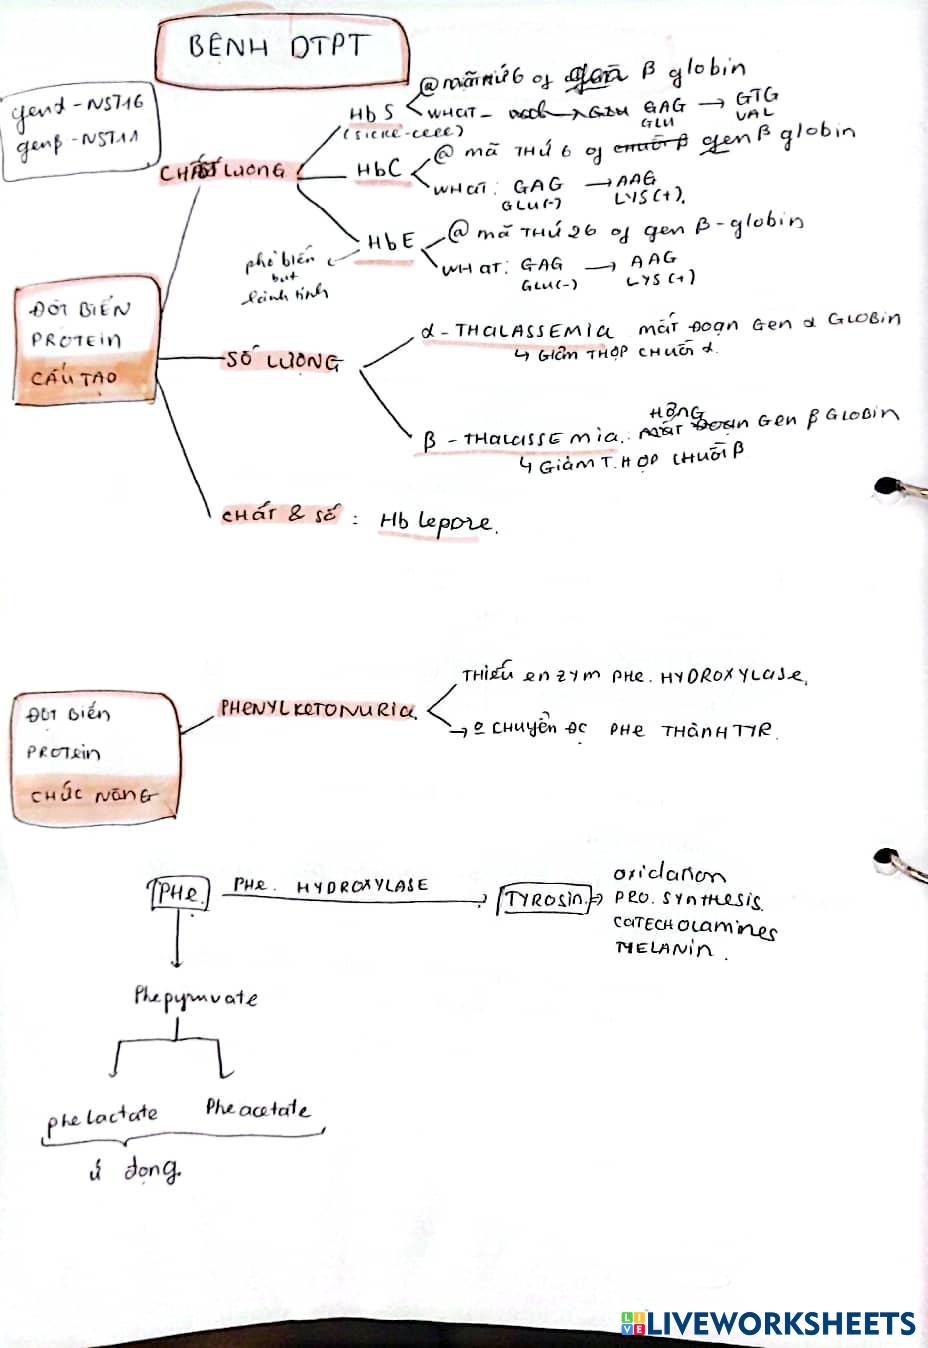 BỆNH DTPT
genα - NST16
genβ - NST11
CHẤT LƯỢNG
HbS
(SICKLE-CELL)
@ mã THỨ 6 of gen β globin
WHAT - GAG → GTG
GLU VAL
HbC
@ mã THỨ 6 of chuỗi β gen β globin
WHAT: GAG → AAG
GLU(-) LYS(+).
HbE
phổ biến
but
lành tính
@ mã THỨ 26 of gen β-globin
WHAT: GAG → AAG
GLU(-) LYS(+)
ĐỘT BIẾN
PROTEIN
CẤU TẠO
SỐ LƯỢNG
α - THALASSEMIA MẤT ĐOẠN Gen α GLOBIN
↳ GIẢM T.HỢP CHUỖI α.
HỎNG
β - THALASSEMIA: MẤT ĐOẠN Gen β GLOBIN
↳ GIẢM T.HỢP CHUỖI β
CHẤT & SỐ : Hb Lepore.
ĐỘT BIẾN
PROTEIN
CHỨC NĂNG
PHENYLKETONURIA.
THIẾU enzym PHE. HYDROXYLASE.
→ CHUYỂN ĐC PHE THÀNH TYR.
PHE. PHE. HYDROXYLASE → TYROSIN. →
oxidation
PRO. SYNTHESIS.
CATECHOLAMINES
MELANIN.
Phepyruvate
phelactate Pheacetate
ứ đọng.
LIVEWORKSHEETS